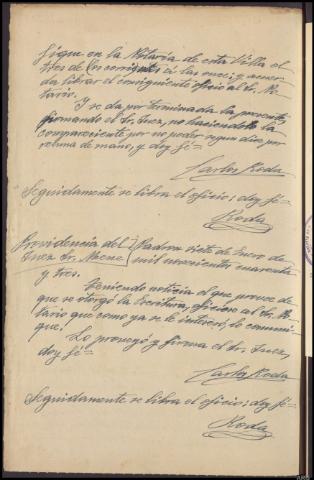 sigue en la Notaría de esta Villa el
tres de los corrientes á las once; y acuer-
da librar el consiguiente oficio al Sr. No-
tario.
Y se da por terminada la presente
firmando el Sr. Juez, no haciéndolo la
compareciente por no poder segun dice, por
reuma de mano, y doy fé=
Carlos Roda
Seguidamente se libra el oficio; doy fé=
Roda
Providencia del Padron siete de Enero de
Juez Sr. mil novecientos cuarenta
y tres.
Teniendo noticia el que provee de
que se otorgó la Escritura, oficiese al Sr. No-
tario que como ya se le interesó, lo comuni-
que.
Lo proveyó y firma el Sr. Juez,
doy fé=
Carlos Roda
Seguidamente se libra el oficio; doy fé=
Roda